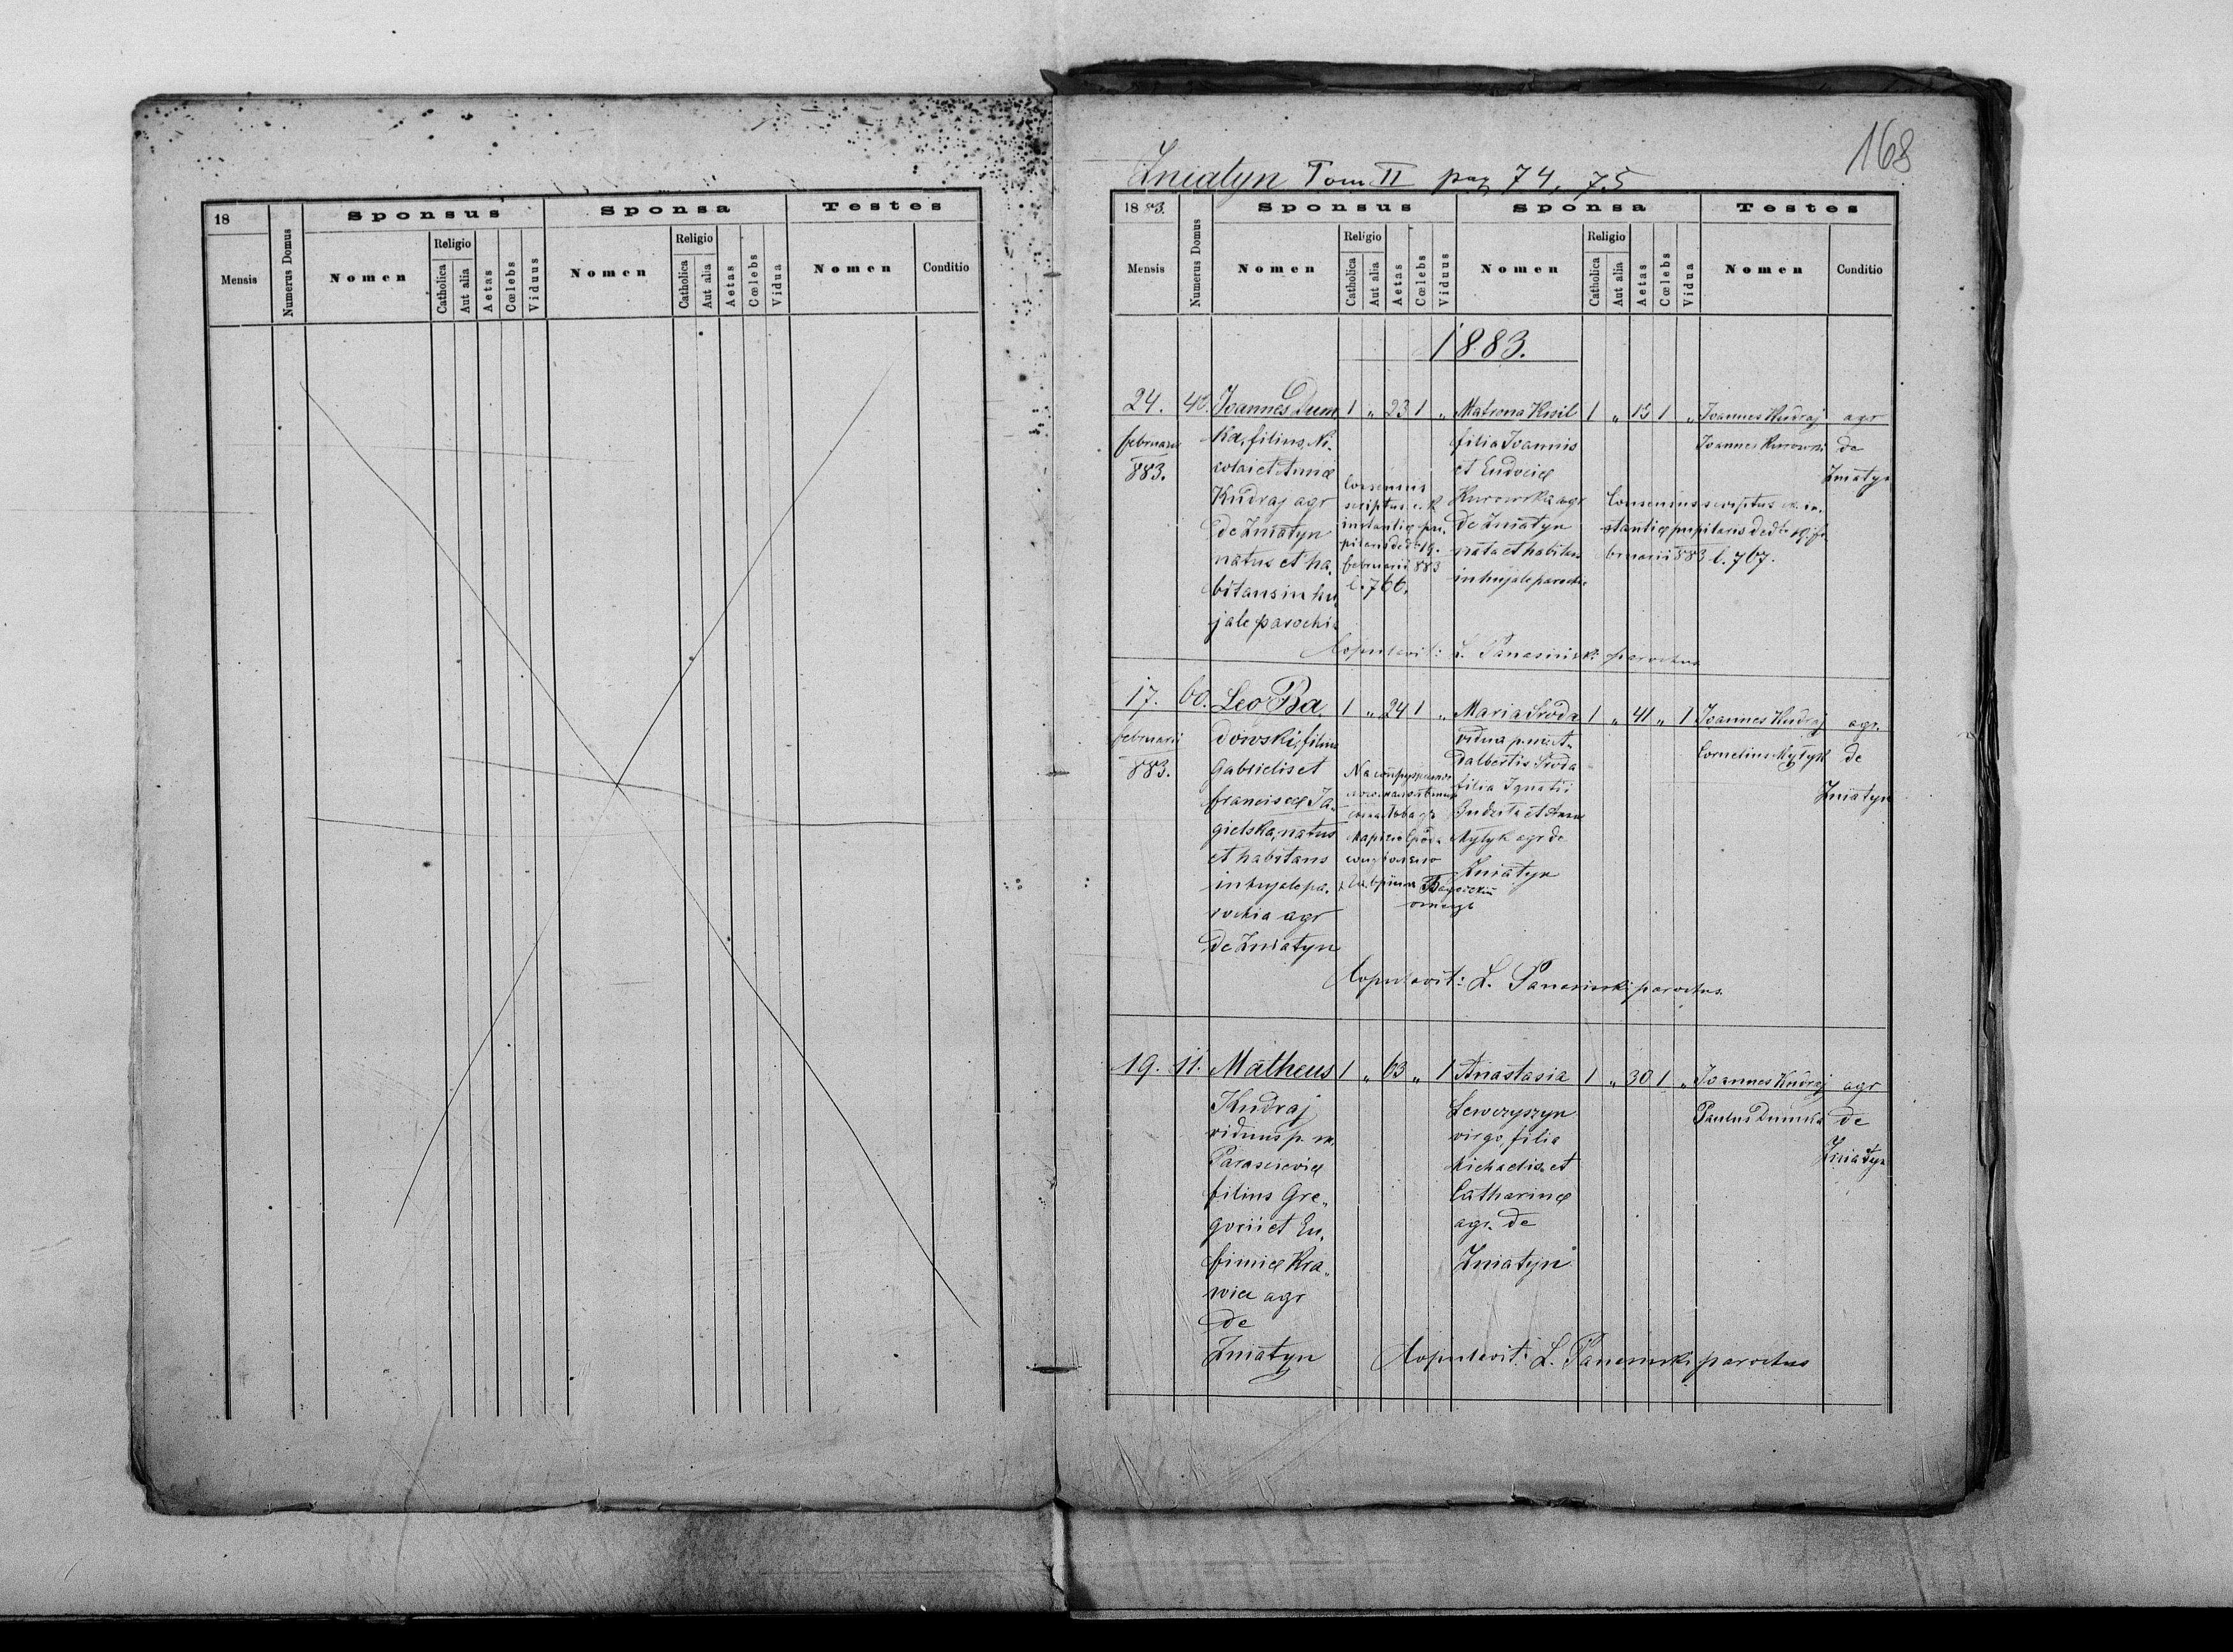 168
Zniatyn Tom II pag 74, 75
18
Mensis
Numerus Domus
Sponsus
Nomen
Religio
Catholica
Aut alia
Aetas
Cœlebs
Viduus
Sponsa
Nomen
Religio
Catholica
Aut alia
Aetas
Cœlebs
Vidua
Testes
Nomen
Conditio
1883.
Mensis
Numerus Domus
Sponsus
Nomen
Religio
Catholica
Aut alia
Aetas
Cœlebs
Viduus
Sponsa
Nomen
Religio
Catholica
Aut alia
Aetas
Cœlebs
Vidua
Testes
Nomen
Conditio
1883.
24.
februarii
883.
Joannes Dum
ka, filius Ni-
colai et Annæ
Kudraj agr
de Zniatyn
natus et ha-
bitans in hu
jale parochia
1 „ 23 1 „
Consensus
scriptus c. k.
instantiæ pu-
pilaris de dto 19.
februarii 883
l. 766.
Matrona
filia Joannis
et Eudociæ
Kurowska agr
de Zniatyn
nata et habitans
in hujale parochia
1 „ 15 1 „
Consensus scriptus in-
stantiæ pupilaris de dto 19. fe-
bruarii 883 l. 767.
Joannes Kudraj
Joannes Kurowski
agr
de
Zniatyn
Copulavit: L. parochus
17.
februarii
883.
60.
Leo Ba-
dowski, filius
Gabrielis et
franciscæ Ja-
gielska, natus
et habitans
in hujale pa-
rochia agr
de Zniatyn
1 „ 24 1 „
Maria Sroda
vidua p. m. A-
dalbertis Sroda
filia Ignatii
et Annæ
Mytyk agr de
Zniatyn
1 „ 41 „ 1
Joannes Kudraj
Cornelius Mytyk
agr.
de
Zniatyn
Copulavit: L. parochus.
19.
11.
Matheus
Kudraj
viduus p. m.
Parasceviæ
filius Gre-
gorii et Eu-
fimiæ Kra-
wiec agr
de
Zniatyn
1 „ 63 „ 1
Anastasia
Lewczyszyn
virgo, filia
Michaelis et
Catharinæ
agr. de
Zniatyn
1 „ 30 1 „
Joannes Kudraj
Paulus Dumka
agr
de
Zniatyn
Copulavit: L. parochus